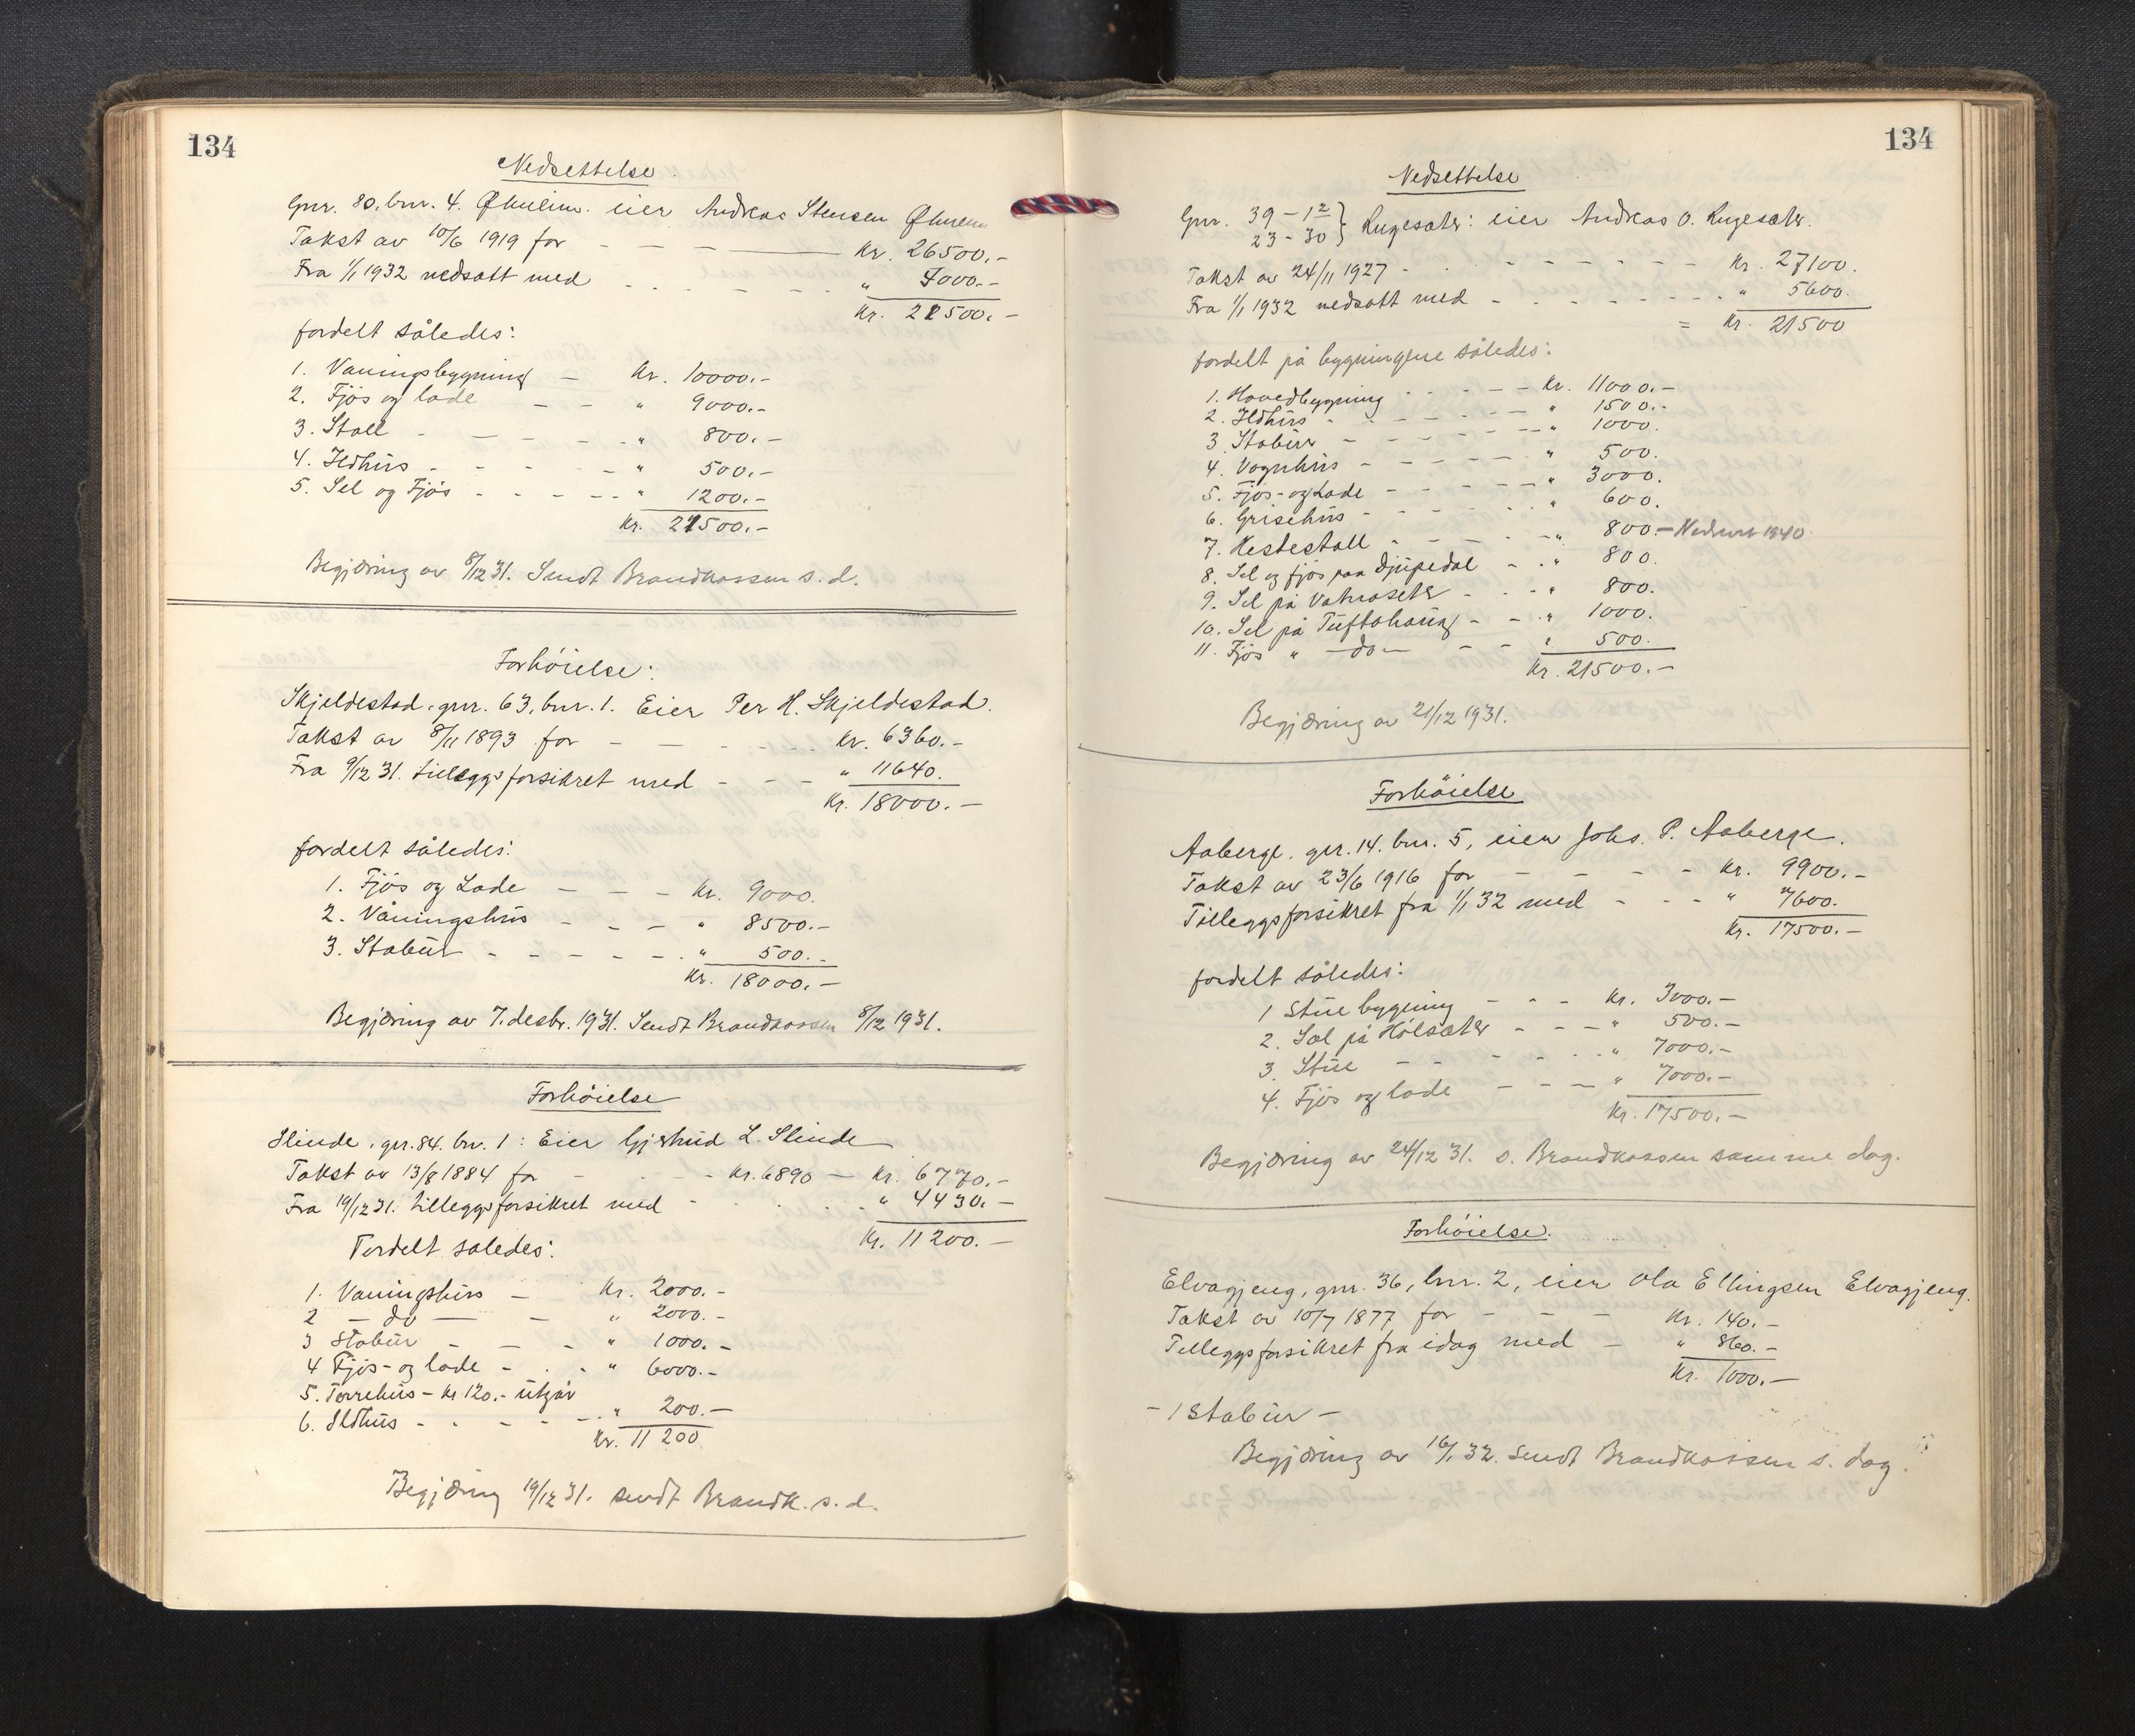 134
Nedsettelse.
Gnr. 80, bnr. 4. Øhrlein. eier Andreas Stensen
Takst av 10/6 1919 for - - - Kr. 26500.-
Fra 1/1 1932 nedsatt med - - - " 000.-
Kr. 21500.-
fordelt således:
1. Vaningsbygning - Kr. 10000.-
2. Fjøs og lade - - " 9000.-
3. Stall - - - - - " 800.-
4. Ildhus - - - - - " 500.-
5. Sel og Fjøs - - - - - " 1200.-
Kr. 21500.-
Begjæring av 8/12 31. Sendt Brandkassen s. d.
Forhøielse:
Skjeldestad, gnr. 63, bnr. 1. Eier Per H. Skjeldestad.
Takst av 8/11 1893 for - - - - Kr. 6360.-
Fra 9/12 31. tilleggsforsikret med - - - " 11640.
Kr. 18000.-
fordelt således:
1. Fjøs og Lade - - - Kr. 9000.
2. Våningshus - - - " 8500.-
3. Stabur - - - - - " 500.-
Kr. 18000.-
Begjæring av 7. desbr. 1931. Sendt Brandkassen 8/12 1931.
Forhøielse
Slinde, gnr. 84. bnr. 1: Eier Gjertrud L. Slinde
Takst av 13/8 1884 for - - - Kr. 6890 - Kr. 6770.-
Fra 19/12 31. tilleggsforsikret med - - - " 4430.-
Kr. 11200.-
Fordelt saledes:
1. Vaningshus - Kr. 2000.-
2 - do - - " 2000.-
3 Stabur - - - " 1000.-
4 Fjøs- og lade - - - " 6000.-
5. Tørrehus - Kr 120.- utgår
6. Ildhus - - - - - " 200.-
Kr. 11200
Begjæring 19/12 31. sendt Brandk. s. d.
134
Nedsettelse
Gnr. 39 - 12
23 - 30 } Rugesæter: eier Andreas O. Rugesæter.
Takst av 24/11 1927 - - - - Kr. 27100.
Fra 1/1 1932 nedsatt med - - - - " 5600.
= Kr. 21500
fordelt på bygningene således:
1. Hovedbygning - - - - Kr. 11000.-
2. Ildhus - - - - " 1500.-
3. Stabur - - - - " 1000.
4. Vognhus - - - - " 500.
5. Fjøs- og Lade - - - - " 3000.
6. Grisehus - - - - " 600.
7. Hestestall - - - - " 800.- Nedrevet 1940.
8. Sel og fjøs paa Djupedal - - " 800.
9. Sel på Vatnasæter - - - " 800.
10. Sel på Tuftahaug - - - " 1000.
11. Fjøs " - do - - - " 500.
Kr. 21500.-
Begjæring av 21/12 1931.
Forhøielse
Aaberge, gnr. 14. bnr. 5, eier Johs. P. Aaberge.
Takst av 23/6 1916 for - - - - Kr. 9900.-
Tilleggsforsikret fra 1/1 32 med - - - " 7600.
Kr. 17500.-
fordelt således:
1 Stuebygning - - - Kr. 3000.-
2. Sæl på Hølsæter - - - " 500.-
3. Stue - - - - - " 7000.-
4. Fjøs og lade - - - " 7000.-
Kr. 17500.-
Begjæring av 24/12 31. s. Brandkassen samme dag.
Forhøielse.
Elvagjeng, gnr. 36, bnr. 2, eier Ola Ellingsen Elvagjeng.
Takst av 10/7 1877 for - - - Kr. 140.-
Tilleggsforsikret fra idag med - " 860.-
Kr. 1000.-
- 1 Stabur -
Begjæring av 16/1 32. Sendt Brandkassen s. dag.